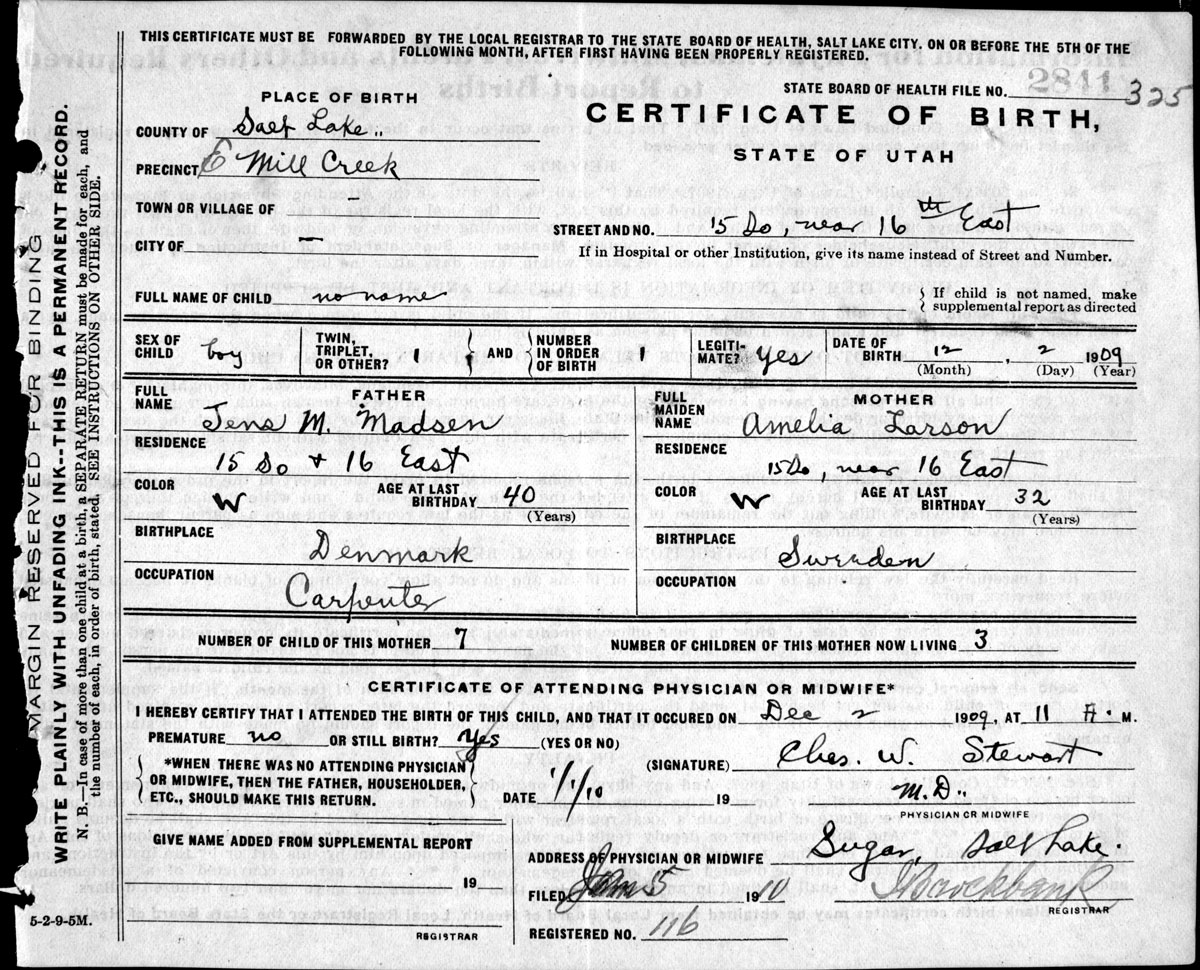 THIS CERTIFICATE MUST BE FORWARDED BY THE LOCAL REGISTRAR TO THE STATE BOARD OF HEALTH, SALT LAKE CITY, ON OR BEFORE THE 5TH OF THE
FOLLOWING MONTH, AFTER FIRST HAVING BEEN PROPERLY REGISTERED.
2841
STATE BOARD OF HEALTH FILE NO. 325
PLACE OF BIRTH
CERTIFICATE OF BIRTH,
STATE OF UTAH
COUNTY OF Salt Lake
PRECINCT E Mill Creek
TOWN OR VILLAGE OF –
STREET AND NO. 15 So, near 16th East
CITY OF –
If in Hospital or other Institution, give its name instead of Street and Number.
FULL NAME OF CHILD no name
} If child is not named, make
supplemental report as directed
SEX OF CHILD boy
TWIN, TRIPLET, OR OTHER? 1
} AND {
NUMBER IN ORDER OF BIRTH 1
LEGITI-MATE? yes
DATE OF BIRTH 12, 2 1909
(Month) (Day) (Year)
FATHER
FULL NAME Jens M. Madsen
RESIDENCE
15 So + 16 East
COLOR W
AGE AT LAST BIRTHDAY 40
(Years)
BIRTHPLACE
Denmark
OCCUPATION
Carpenter
MOTHER
FULL MAIDEN NAME Amelia Larson
RESIDENCE
15 So, near 16 East
COLOR W
AGE AT LAST BIRTHDAY 32
(Years)
BIRTHPLACE
Sweeden
OCCUPATION
NUMBER OF CHILD OF THIS MOTHER 7
NUMBER OF CHILDREN OF THIS MOTHER NOW LIVING 3
CERTIFICATE OF ATTENDING PHYSICIAN OR MIDWIFE*
I HEREBY CERTIFY THAT I ATTENDED THE BIRTH OF THIS CHILD, AND THAT IT OCCURED ON Dec 2 1909, AT 11 A. M.
PREMATURE no OR STILL BIRTH? yes (YES OR NO)
*WHEN THERE WAS NO ATTENDING PHYSICIAN
OR MIDWIFE, THEN THE FATHER, HOUSEHOLDER,
ETC., SHOULD MAKE THIS RETURN.
(SIGNATURE) Chas. W. Stewart
DATE 1/1/10 19
M.D.
PHYSICIAN OR MIDWIFE
GIVE NAME ADDED FROM SUPPLEMENTAL REPORT
19
REGISTRAR
ADDRESS OF PHYSICIAN OR MIDWIFE Sugar, Salt Lake.
FILED Jan 5 1910
REGISTRAR
REGISTERED NO. 116
5-2-9-5M.
MARGIN RESERVED FOR BINDING
WRITE PLAINLY WITH UNFADING INK--THIS IS A PERMANENT RECORD.
N. B.—In case of more than one child at a birth, a SEPARATE RETURN must be made for each, and
the number of each, in order of birth, stated. SEE INSTRUCTIONS ON OTHER SIDE.